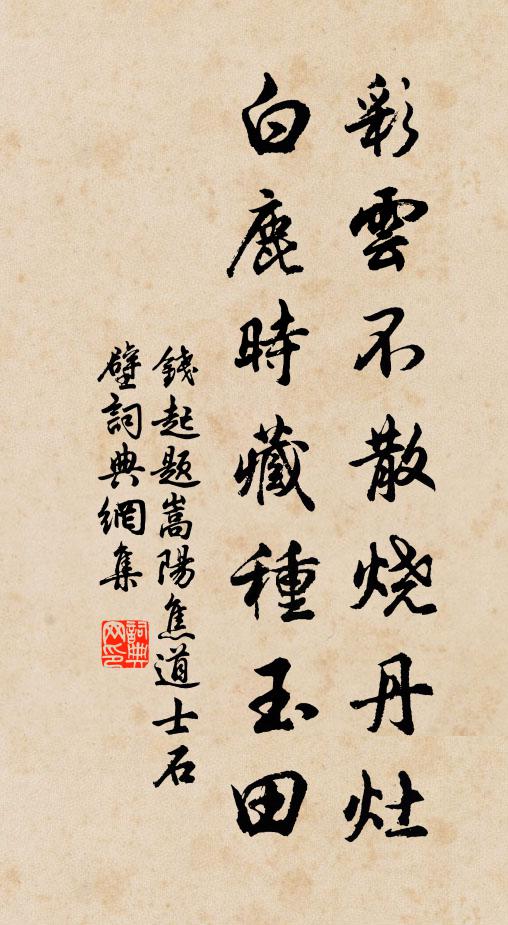 彩雲不散烧丹灶
白鹿時藏種玉田
錢起题嵩陽焦道士石
壁詞典網集
詞典網印